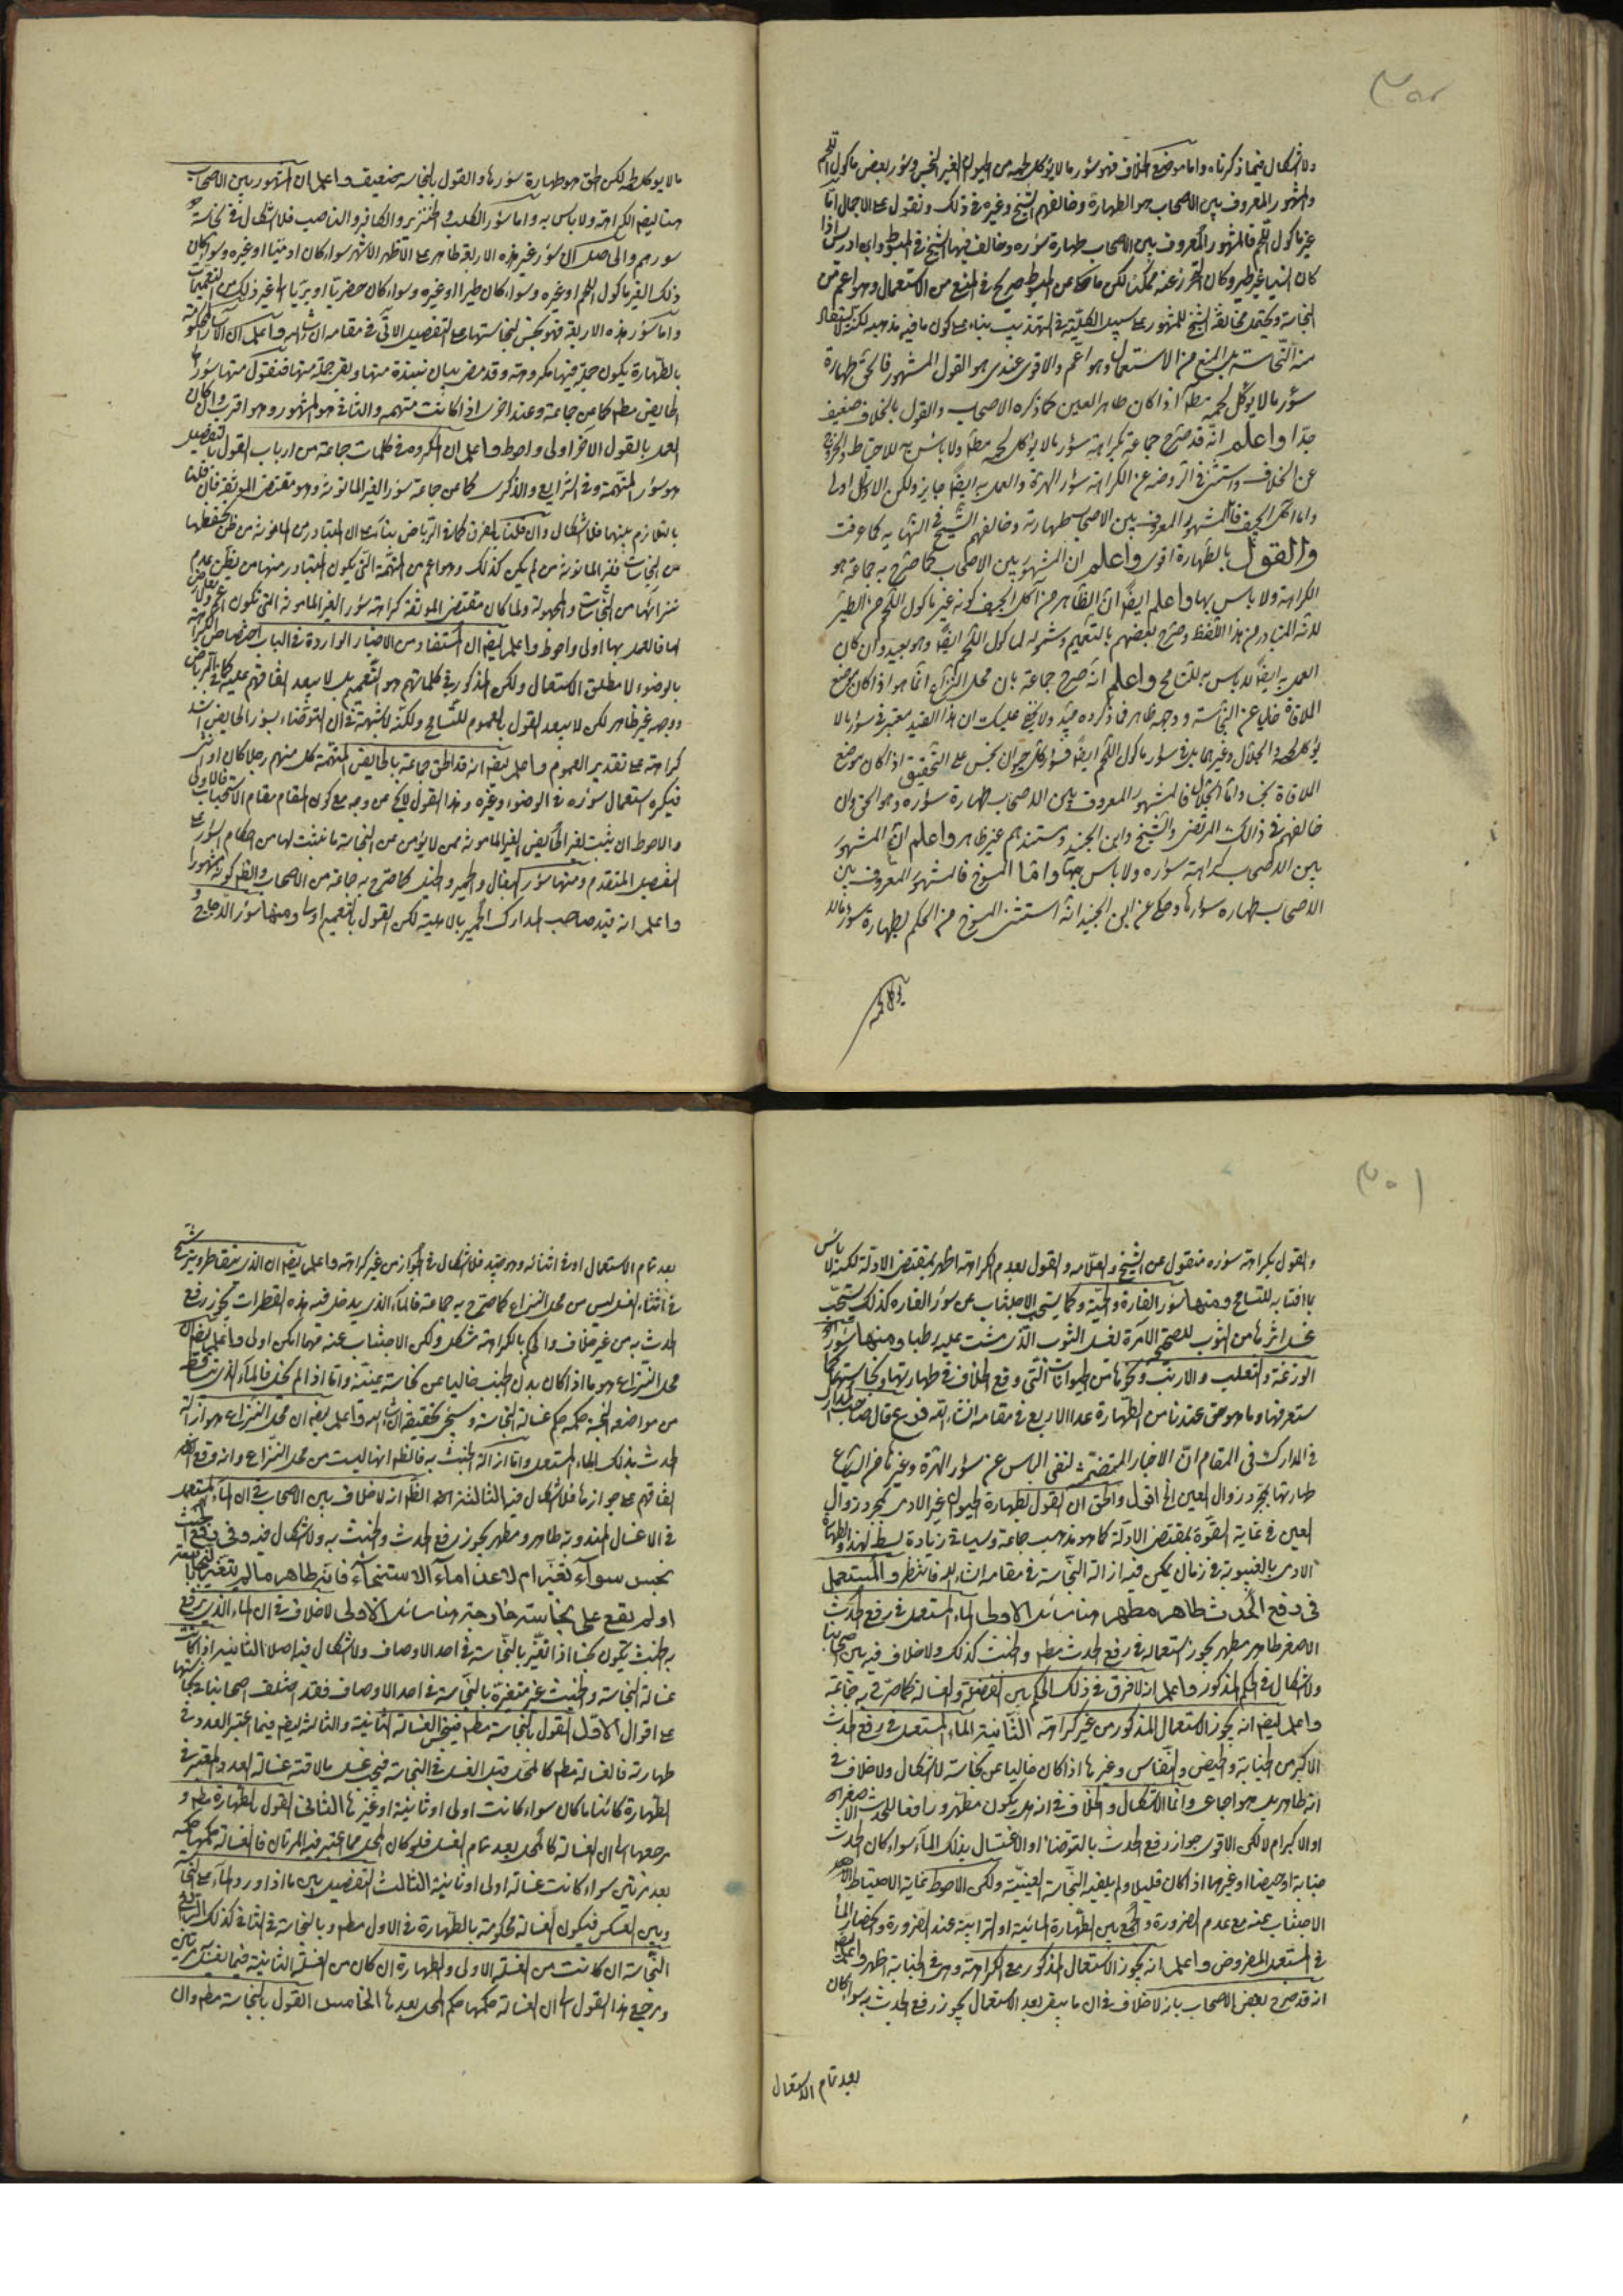 ولا اشكال فيما ذكرناه واما موضع الخلاف فهو سؤر ما لا يؤكل لحمه من الحيوان الغير النجس وسؤر بعض ماكول اللحم
والمشهور المعروف بين الاصحاب هو الطهارة وخالفهم الشيخ وغيره في ذلك ونقول على الاجمال امّا
غير ماكول اللحم فالمشهور المعروف بين الاصحاب طهارة سؤره وخالف فيها الشيخ في المبسوط وابن ادريس اذا
كان انسيا غير طير وكان التحرز عنه ممكنا لكن ما حكى عن المبسوط صريح في المنع من الاستعمال وهو اعم من
النجاسة ويحتمل مخالفة الشيخ للمشهور على سبيل الكلية في التهذيب بناء على كون ما فيه مذهبه لكنه
من النّجاسة بل المنع من الاستعمال وهو اعم والاقوى عندى هو القول المشهور فالحق طهارة
سؤر ما لا يؤكل لحمه مطم اذا كان طاهر العين كما ذكره الاصحاب والقول بالخلاف ضعيف
جدّا واعلم انّه قد صرّح جماعة بكراهة سؤر ما لا يؤكل لحمه مطم ولا باس به للاحتياط والخروج
عن الخلاف واستثنى في الروضه عن الكراهة سؤر الهرة والعمل به ايضًا جايز ولكن الاوّل اولى
وامّا آكل الجيف فالمشهور المعروف بين الاصحاب طهارته وخالفهم الشّيخ في النّهايه كما عرفت
والقول بالطّهارة اقوى واعلم ان المشهور بين الاصحاب كما صرّح به جماعة هو
الكراهة ولا باس بها واعلم ايضًا انّ الظّاهر من آكل الجيف كونه غير ماكول اللّحم من الطّير
لانّه المتبادر من هذا اللّفظ وصرّح بعضهم بالتعميم وشموله لماكول اللّحم ايضًا وهو بعيد وان كان
العمل به ايضًا لا باس به للتّسامح واعلم انّه صرّح جماعة بان محل النّزاع انّما هو اذا كان موضع
الملاقاة خاليا عن النّجاسة ووجهه ظاهر فما ذكروه جيّد ولا يخفى عليك ان هذا القيد معتبر في سؤر ما لا
يؤكل لحمه والجلّال وغيرهما بل في سؤر ماكول اللّحم ايضًا فسؤر كلّ حيوان نجس على التّحقيق اذا كان موضع
الملاقاة نجسا وامّا الجلّال فالمشهور المعروف بين الاصحاب طهارة سؤره وهو الحق وان
خالفهم في ذالك المرتضى والشّيخ وابن الجنيد ومستندهم غير ظاهر واعلم انّ المشهور
بين الاصحاب كراهة سؤره ولا باس بها وامّا المسوخ فالمشهور المعروف بين
الاصحاب طهاره سؤرها وحكى عن ابن الجنيد انّه استثنى المسوخ من الحكم بطهارة سؤر ما لا
يؤكل لحمه
ما لا يوكل لحمه لكن الحق هو طهارة سؤرها والقول بالنجاسة ضعيف واعلم ان المشهور بين الاصحاب
هنا ايضا الكراهة ولا باس به واما سؤر الكلب والخنزير والكافر والناصب فلا اشكال في نجاسة
سورهم والحاصل ان سؤر غير هذه الاربعة طاهر على الاظهر الاشهر سواء كان ادميّا او غيره وسواء كان
ذلك الغير ماكول اللحم او غيره وسواء كان طيرا او غيره وسواء كان حضريّا او بريّا الى غير ذلك من التعميمات
وامّا سؤر هذه الاربعة فهو نجس لنجاستها على التفصيل الاتى في مقامه انشاء الله واعلم ان الاسآر المحكومة
بالطّهارة يكون جملة منها مكروهة وقد مضى بيان نبذة منها وبقى جملة منها فنقول منها سؤر
الحايض مطم كما عن جماعة وعند اخرى اذا كانت متهمه والثانى هو المشهور وهو اقرب وان كان
العمل بالقول الاخر اولى واحوط واعلم ان المكروه في كلمات جماعة من ارباب القول بالتفصيل
هو سؤر المتّهمة وفي الشرايع والذكرى كما عن جماعة سؤر الغير المامونة وهو مقتضى الموثقة فان قلنا
بالتلازم بينهما فلا اشكال وان قلنا بالفرق كما في الرّياض بناء على ان المتبادر من المامونة من ظن تحفظها
من النجاسات فغير المامونة من لم يكن كذلك وهو اعم من المتّهمة التى يكون المتبادر منها من يظن عدم
لها فالعمل بها اولى واحوط واعلم ايضا ان المستفاد من الاخبار الواردة في الباب اختصاص الكراهة
بالوضوء لا مطلق الاستعمال ولكن المذكور في كلماتهم هو التّعميم بل لا يبعد اتفاقهم عليه كما في الرياض
ووجهه غير ظاهر لكن لا يبعد القول بالعموم للتّسامح ولكنّه لا شبهة في ان التوضّاء بسؤر الحايض اشد
كراهة على تقدير العموم واعلم ايضا انه قد الحق جماعة بالحايض المتّهمة كل متهم رجلا كان او انثى
فيكره استعمال سؤره في الوضوء وغيره وهذا القول لا يخ من وجه مع كون المقام مقام الاستحباب فالاولى
والاحوط ان يثبت لغير الحايض الغير المامونة ممن لا يؤمن من النجاسة ما يثبت لها من احكام السؤر على
التفصيل المتقدم ومنها سؤر البغال والحمير والخيل كما صرّح به جماعة من الاصحاب والظم كونه مشهورا
واعلم انه قيّد صاحب المدارك الحمير بالاهلية لكن القول بالتعميم اولى ومنها سؤر الدجاج و
والقول بكراهة سؤره منقول عن الشيخ والعلامه والقول بعدم الكراهة اظهر بمقتضى الادلة لكنه لا باس
بالفتاء به للتّسامح ومنها سؤر الفارة والحيّة وكما يستحب الاجتناب عن سؤر الفاره كذلك يستحبّ
غسل اثرها من الثوب للصحيح الآمرة لغسل الثوب الّذى مشت عليه رطبا ومنها سؤر
الوزغة والثعلب والارنب ونحوها من الحيوانات التّى وقع الخلاف في طهارتها ونجاستها كما
ستعرفها وما هو حق عندنا من الطّهارة عدا الاربع في مقامه انشاء الله فرع قال صاحب المدارك
في المدارك في المقام انّ الاخبار المتضمّنة لنفى الباس عن سؤر الهرّة وغيرها من السّباع
طهارتها بمجّرد زوال العين الخ اقول والحق ان القول بطهارة الحيوان غير الادمى بمجرد زوال
العين في غاية القوّة بمقتضى الادلّة كما هو مذهب جماعة وسياتى زيادة بسط لهذا
الادمى بالغيبوبة في زمان يمكن فيه ازالة النّجاسة في مقامه انشاء الله فانتظر والمستعمل
فى رفع الحدث طاهر مطهر هنا مسائل الاولى الماء المستعمل في رفع الحدث
الاصغر طاهر مطهر يجوز استعماله في رفع الحدث مطم والخبث كذلك ولا خلاف فيه بين اصحابنا
ولا اشكال في الحكم المذكور واعلم انه لا فرق في ذلك الحكم بين الفضلة والغسالة كما صرّح به جماعة
واعلم ايضا انه يجوز الاستعمال المذكور من غير كراهة الثّانية الماء المستعمل في رفع الحدث
الاكبر من الجنابة والحيض والنّفاس وغيرها اذا كان خاليا عن نجاسة لا اشكال ولا خلاف في
انه طاهر بل هو اجماعى وانّما الاشكال والخلاف في انه هل يكون مطهّرا ورافعا للحدث الاصغر
او الاكبر ام لا لكن الاقوى جواز رفع الحدث بالتوضّا او الاغتسال بذلك المآء سواء كان الحدث
جنابة او حيضا او غيرهما اذا كان قليلا ولم يلقيه النّجاسة العينيّة ولكن الاحوط غاية الاحتياط
الاجتناب عنه مع عدم الضرورة والجمع بين الطّهارة المائيّة او الترابيّة عند الضرورة وانحصار الماء
في المستعمل المفروض واعلم انه يجوز الاستعمال المذكور مع الكراهة وهى في الجنابة اظهر واعلم ايضا
انه قد صرح بعض الاصحاب بانه لا خلاف في ان ما يبقى بعد الاستعمال يجوز رفع الحدث به سواء كان
بعد تمام الاستعمال
بعد تمام الاستعمال او في اثنائه وهو جيّد فلا اشكال في الجواز من غير كراهة واعلم ايضا ان الذى يتقاطر ويترشح
في اثناء الغسل ليس من محل النزاع كما صرّح به جماعة فالمآء الذى يدخل فيه هذه القطرات يجوز رفع
الحدث به من غير خلاف والحكم بالكراهة مشكل ولكن الاجتناب عنه مهما امكن اولى واعلم ايضا ان
محل النّزاع هو ما اذا كان بدن الجنب خاليا عن نجاسة عينيّة وامّا اذا لم يكن فالمآء الذى تساقط
من مواضعه النجسة حكمه حكم غسالة النجاسة وسيجئ تحقيقه انشاء الله واعلم ايضا ان محل النّزاع هو ازالة
الحدث بذلك الماء المستعمل وامّا ازالة الخبث به فالظم انها ليست من محل النزاع وانه وقع
اتفاقهم على جوازها فلا اشكال فيه الثالثة الظّم انه لا خلاف بين الاصحاب في ان الماء المستعمل
في الاغسال المندوبة طاهر ومطهر يجوز رفع الحدث والخبث به ولا اشكال فيه وفى رفع الخبث
نجس سوآء تغيّر ام لا عدا مآء الاستنجآء فانّه طاهر ما لم يتغير بالنجاسة
او لم يقع على نجاسة خارجة هنا مسائل الاولى لا خلاف في ان الماء الذى يرفع
به الخبث يكون نجسا اذا تغيّر بالنّجاسة في احد الاوصاف ولا اشكال فيه اصلا الثانية اذا كانت
غسالة النجاسة والخبث غير متغيرة بالنّجاسة في احد الاوصاف فقد اختلف اصحابنا في نجاستها
على اقوال الاول القول بالنجاسة مطم فينجس الغسالة الثانية والثالثة ايضا فيما اعتبر العدد في
طهارته فالغسالة مطم كالمحل قبل الغسل في النجاسة فيجب غسل ما لاقته غسالة العدد المعتبر في
الطّهارة كائنا ما كان سواء كانت اولى او ثانية او غيرها الثانى القول بالطّهارة مطم و
مرجعها الى ان الغسالة كالمحل بعد تمام الغسل فلو كان المحل مما اعتبر فيه المرتان فالغسالة حكمها حكمه
بعد مرتين سواء كانت غسالة اولى او ثانية الثالث التفصيل بين ما اذا ورد المآء على النجاسة
وبين العكس فيكون الغسالة محكومة بالطّهارة في الاول مطم وبالنجاسة في الثانى كذلك الرابع
النّجاسة ان كانت من الغسلة الاولى والطهارة ان كان من الغسلة الثانية فيما يغسل مرتين
ومرجع هذا القول الى ان الغسالة حكمها حكم المحل بعدها الخامس القول بالنجاسة مطم وان